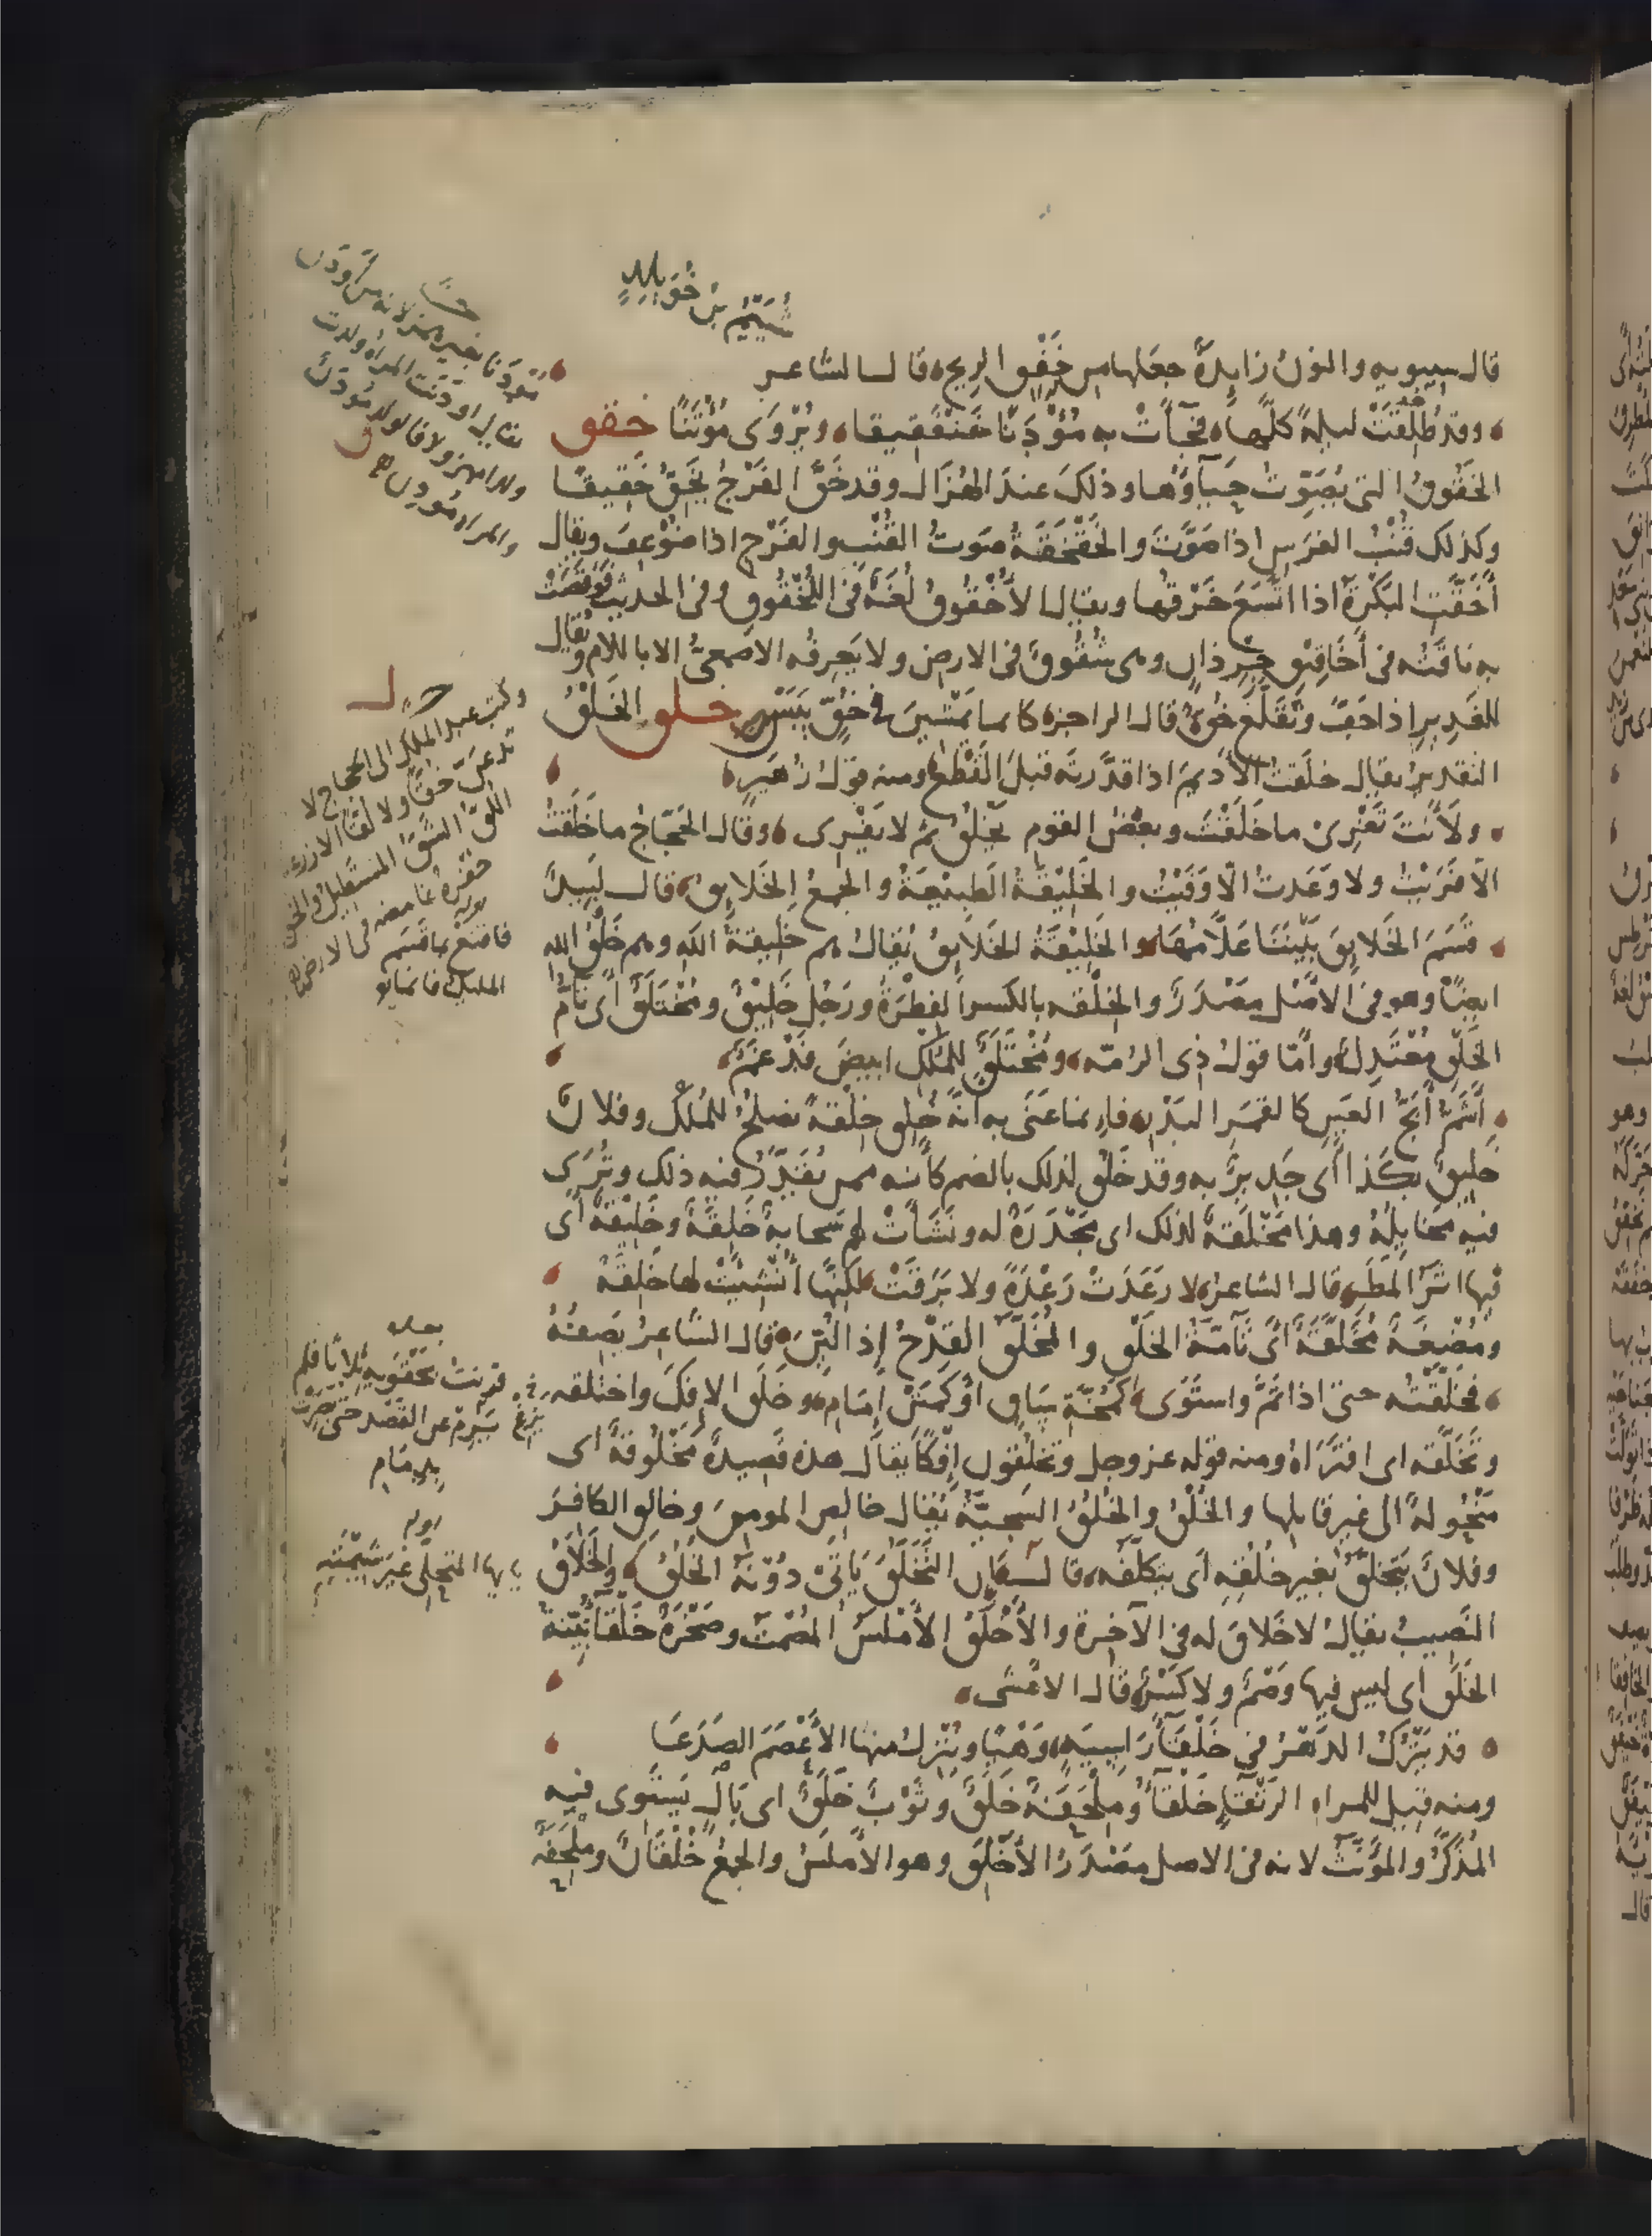 شُيَيْمُ بنُ خُوَيْلِدٍ
قال سيبويه والنون زايدةٌ جعلها من خَفْقِ الريح وقال الشاعر
وقد طَلَّقَتْ ليلةً كلَّها فجآءتْ به مُؤْدَنًا خَنْفَقيقا ويُرْوَى مُوتَنًا خقق
الخَقُوقُ التي يُصَوِّتُ حَيآؤُها وذلك عند الهُزَال وقد خَقَّ الفَرْجُ يَخِقُّ خَقيقًا
وكذلك قُنْبُ الفرس اذا صَوَّتَ والخَقْخَقَةُ صوتُ القُنْبِ والفَرْجِ اذا ضُوعِفَ ويقال
أَخَقَّتِ البَكْرَةُ اذا اتّسَعَ خَرْقُها ويقال الأُخْقُوقُ لُغَةٌ فى اللُّخْقُوقِ وفى الحديث فَوَقَصَتْ
به ناقَتُه فى أَخَاقِيقِ جِرْذانٍ وهى شُقُوقٌ فى الارض ولا يَعْرِفُه الاصمعىُّ الا باللام ويُقال
للغَدِيرِ اذا جَفَّ وتَقَلْفَعَ خُقٌّ قال الراجز كانما يَمْشِينَ فى خُقٍّ يَبَسْ خلق الخَلْقُ
التقديرُ يقال خلَقتُ الأدِيمَ اذا قدَّرتَه قبلَ القَطْعِ ومنه قولُ زُهَيرٍ
ولَأَنْتَ تَفْرِى ما خَلَقْتَ وبعضُ القومِ يَخْلُقُ ثم لا يَفْرِى وقال الحَجّاجُ ما خَلَقْتُ
الّا فَرَيْتُ ولا وَعَدتُ الّا وَفَيْتُ والخَلِيْقَةُ الطَبِيْعَةُ والجمع الخَلايِقُ قال لَبِيدٌ
قَسَمَ الخَلايِقَ بَيْنَنَا عَلّامُهَا والخَلِيْقَةُ الخَلايِقُ يُقالُ هم خليقةُ اللهِ وهم خَلْقُ الله
ايضًا وهو فى الاصْل مَصْدَرٌ والخِلْقه بالكسر الفِطْرَةُ ورَجُل خَلِيْقٌ ومُخْتَلَقٌ اى تَامُّ
الخَلْقِ مُعْتَدِلٌ وأمّا قولُ ذِى الرُمّه ومُخْتَلَقٌ للمُلْكِ ابيضُ فَدْغَمٌ
أَشَمُّ أَبَجُّ العَيْنِ كالقمَرِ البَدْرِ فإنما عَنَى به أنَّه خُلِق خِلْقةً تصلحُ للمُلْك وفلانٌ
خَلِيقٌ بكَذا أى جَديرٌ به وقد خَلُقَ لذلك بالضم كأنه ممن يُقَدَّرُ فيه ذلك وتُرَى
فيه مَخايِلُهُ وهذا مَخْلَقَةٌ لذلك اى مَجْدَرَةٌ له ونَشَأَتْ لهم سَحابةٌ خَلِقَةٌ وخَلِيْقَةٌ أى
فيها اثَرُ المَطَرِ قال الشاعر لا رعَدَتْ رَعْدَةً ولا بَرَقَتْ لكنّها أُنْشِئَتْ لها خَلِقَهْ
ومُضْغَةٌ مُخَلَّقَةٌ أىْ تَآمّةُ الخَلْقِ والمُخَلَّقُ القِدْحُ إذا لُيِّنَ وقال الشاعِرُ يَصِفُهُ
فخَلَّقْتُه حتى اذا تَمَّ واستَوَى كمُخَّةِ سَاقٍ اوْ كمَتْنِ إِمَامِ وخلَق الافكَ واختلقه
وتَخَلَّقه اى افتَرَاهُ ومنه قوله عز وجل وتخلُقون إِفكًا يقال هذه قصيدةٌ مَخْلُوقةٌ اى
مَنْحُولةٌ الى غيرِ قايلها والخُلْقُ والخُلُقُ السَجِيّةُ يُقال خالِصِ المومنَ وخالِقِ الكافرَ
وفلانٌ يَتَخَلَّقُ بغيرِ خُلُقِه اى يتكلّفُه قال إنّ التَّخَلُّقَ يَأتى دُوْنَهُ الخُلُقُ والخَلاقُ
النَّصِيبُ يقال لا خَلاقَ له فى الآخرةِ والأَخْلَقُ الأَمْلَسُ المُصْمَتُ وصَخْرَةٌ خَلْقآءُ بَيّنةُ
الخَلَقِ اى ليس فيها وَصْمٌ ولا كَسْرٌ قال الاعْشى
قد يَتْرُكُ الدهرُ فى خَلْقَآءَ رَاسِيَةٍ وَهْيًا ويُنْزِلُ منها الأَعْصَمَ الصَدَعَا
ومنه قيل للمراةِ الرَتْقآءِ خَلْقآءُ ومِلْحَفَةٌ خَلَقٌ وثَوْبٌ خَلَقٌ اى بَالٍ يَستَوِى فيه
المُذَكَّرُ والمؤنَّثُ لانه فى الاصل مَصْدَرُ الأَخْلَقِ وهو الأَملَسُ والجمعُ خُلْقَانٌ ومِلْحَفَةٌ
مُؤدَنًا بغير همز لانه من أَودَن
يقال اودَنَت المراه ولدت
ولدا ولا يقال ولد مُودَن
والمراه مُودِن
وكتب عبد الملك الى الحجاج لا
تدعَنّ خَقًّا ولا لَقًّا الا زرعته
اللَّقّ الشَّقّ المستطيل والخق
حُفْرةٌ غامضه فى الارض
فاقنَعْ بما قسَم
المليكُ فانما
بعده
قرنتُ بحَقْوَيه ثلاثًا فلم
يزغ عن القَصْد حتى بُصّرَتْ
بدِمَام
يا ايها المتحلى غيرَ شِيْمَتِه